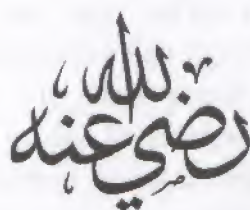 رضي الله عنه